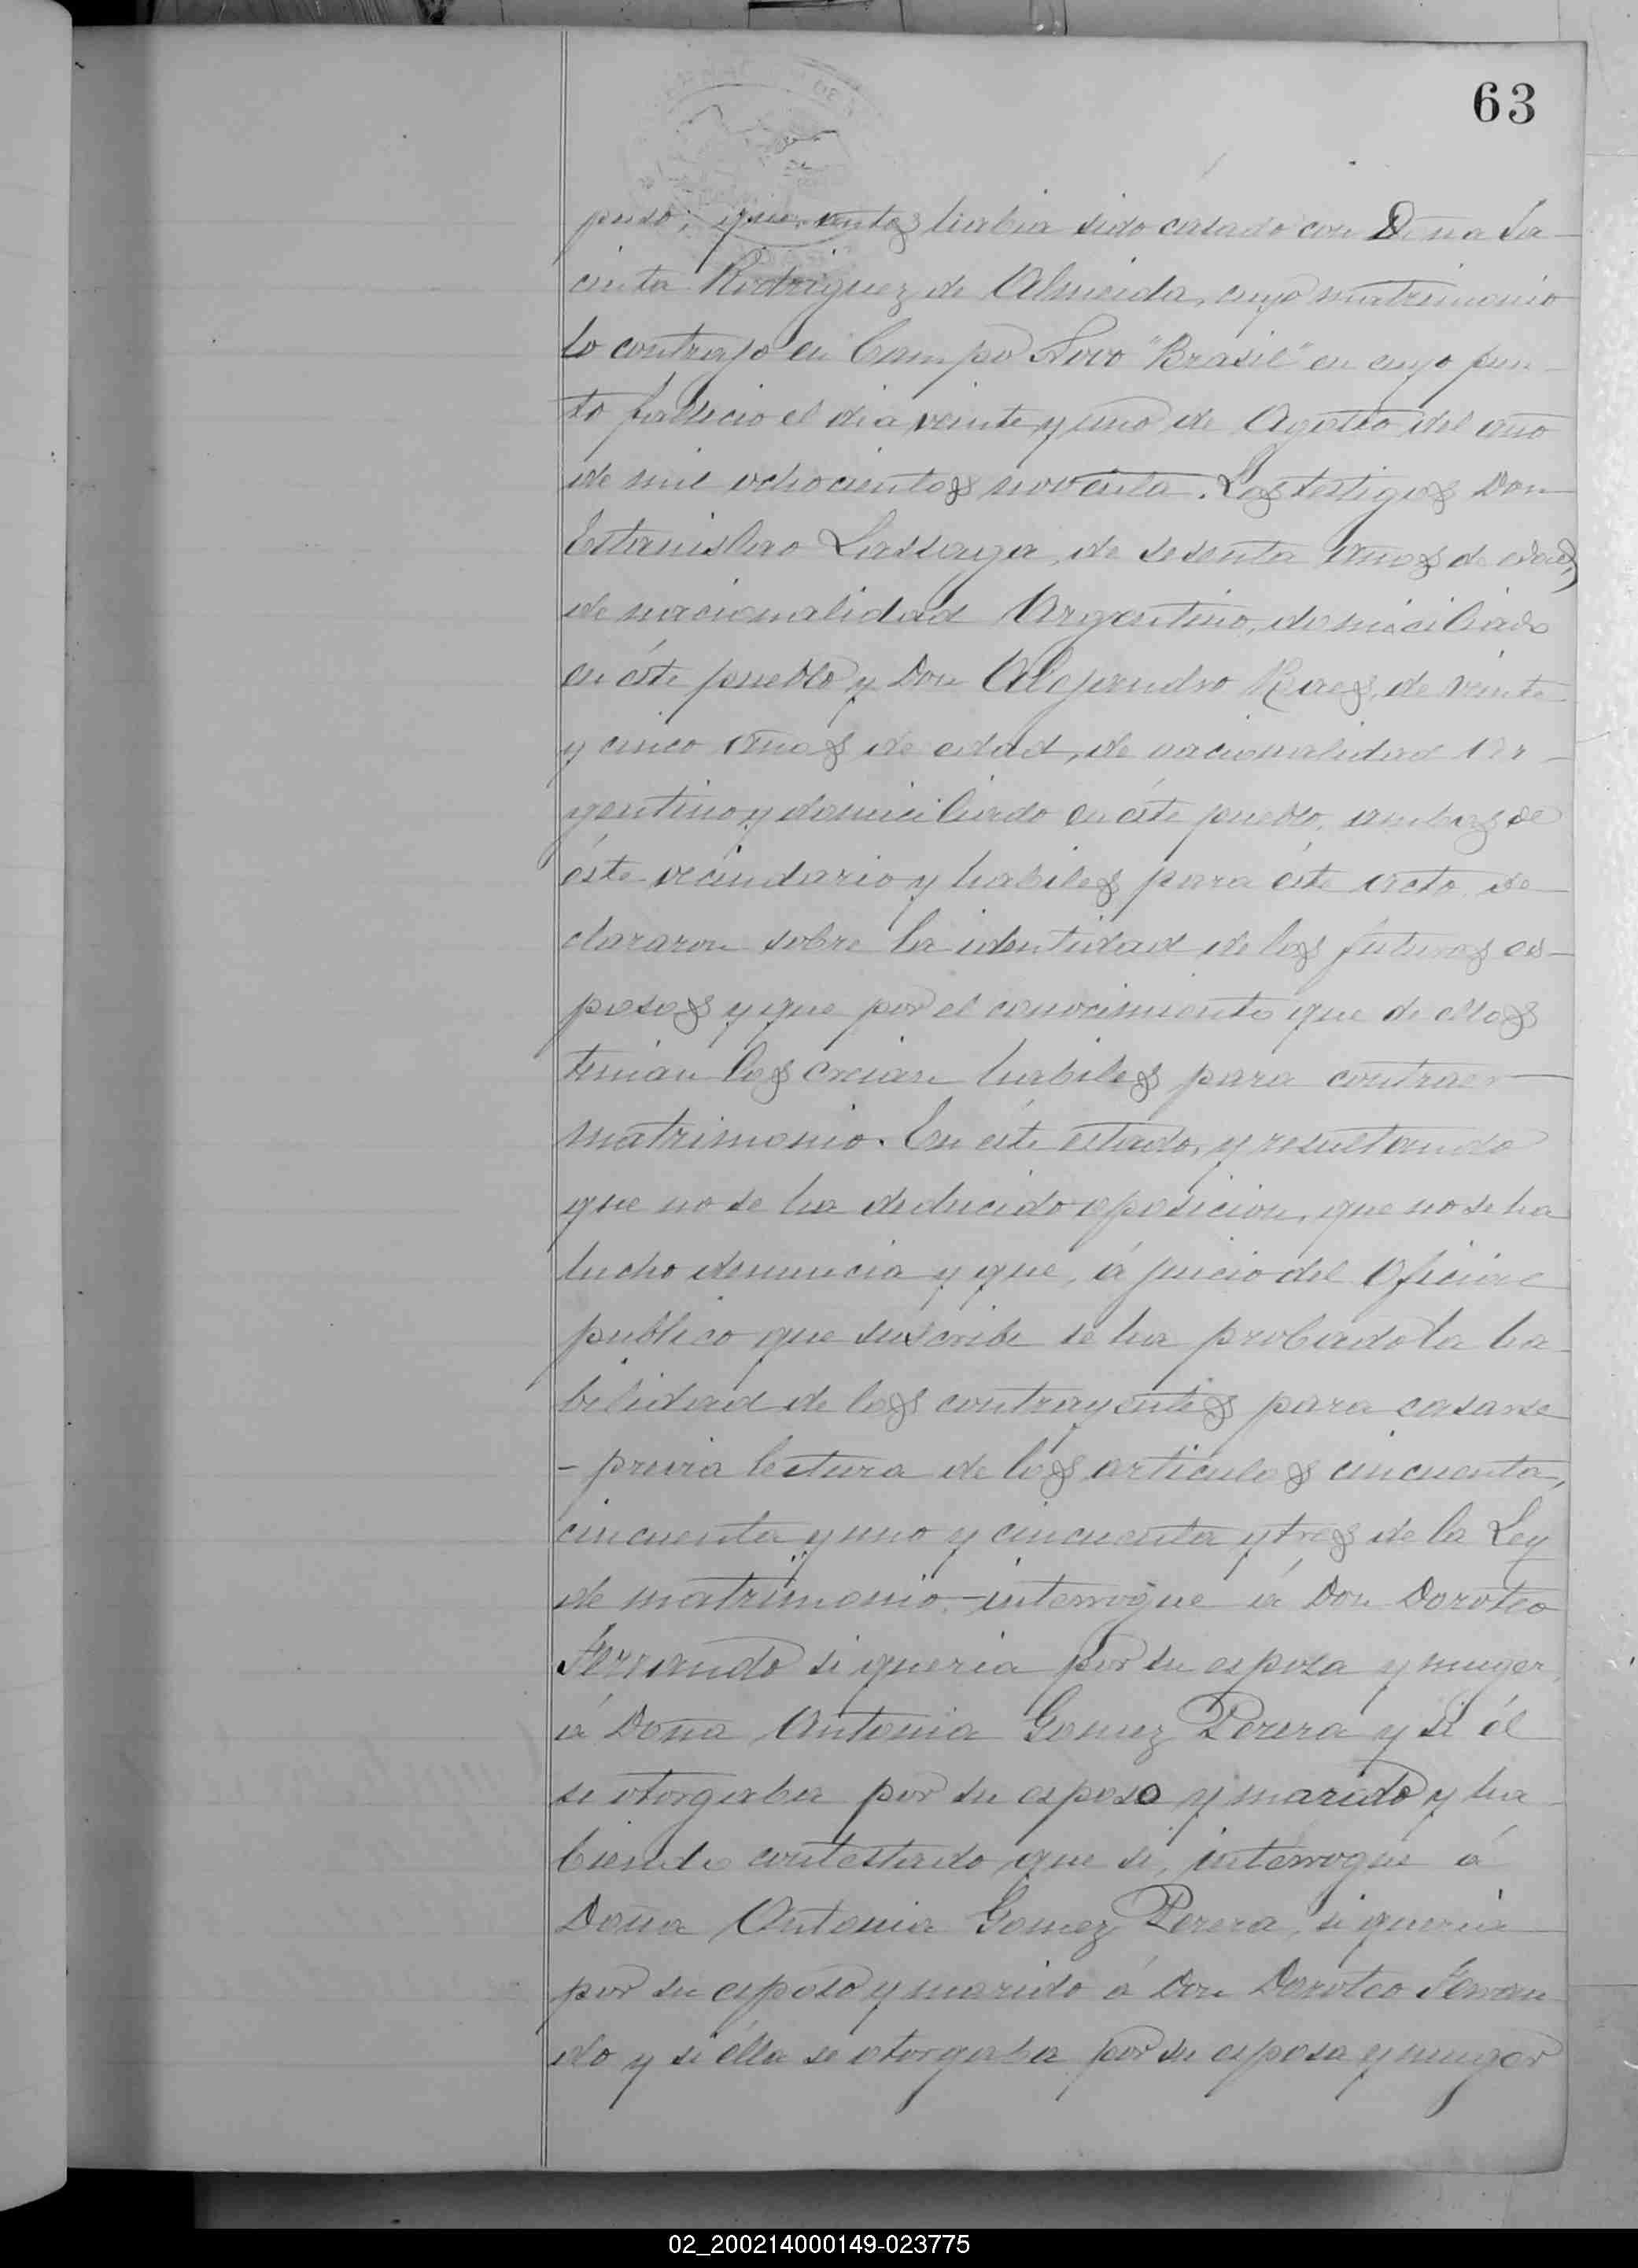 63
puso; que antes habia sido casado con Dona Ja-
cinta Rodriguez de Almeida, cuyo matrimonio
lo contrajo en Campo Novo "Brasil" en cuyo pun-
to fallecio el dia veinte y uno de Agosto del año
de mil ochocientos noventa. Los testigos Don
Estanislao Lassaga, de sesenta años de edad,
de nacionalidad Argentino, domiciliado
en éste pueblo y Don Alejandro de veinte
y cinco años de edad, de nacionalidad Ar-
gentino y domiciliado en éste pueblo, ambos de
éste vecindario y habiles para éste acto, de-
clararon sobre la identidad de los futuros es-
posos y que por el conocimiento que de ellos
tenian los creian habiles para contraer
matrimonio. En éste estado, y resultando
que no se ha deducido oposicion, que no se ha
hecho denuncia y que, á juicio del Oficial
publico que suscribe se ha probado la ha-
bilidad de los contrayentes para casarse
- previa lectura de los articulos cincuenta,
cincuenta y uno y cincuenta y tres de la Ley
de matrimonio, - interrogué á Don Doroteo
Ferrando si queria por su esposa y muger,
á Doña Antonia Gomez Perera y si él
se otorgaba por su esposo y marido y ha-
biendo contestado que si, interrogué á
Doña Antonia Gomez Perera, si queria
por su esposo y marido á Don Doroteo Ferran
do y si élla se otorgaba por su esposa y muger
02_200214000149-023775